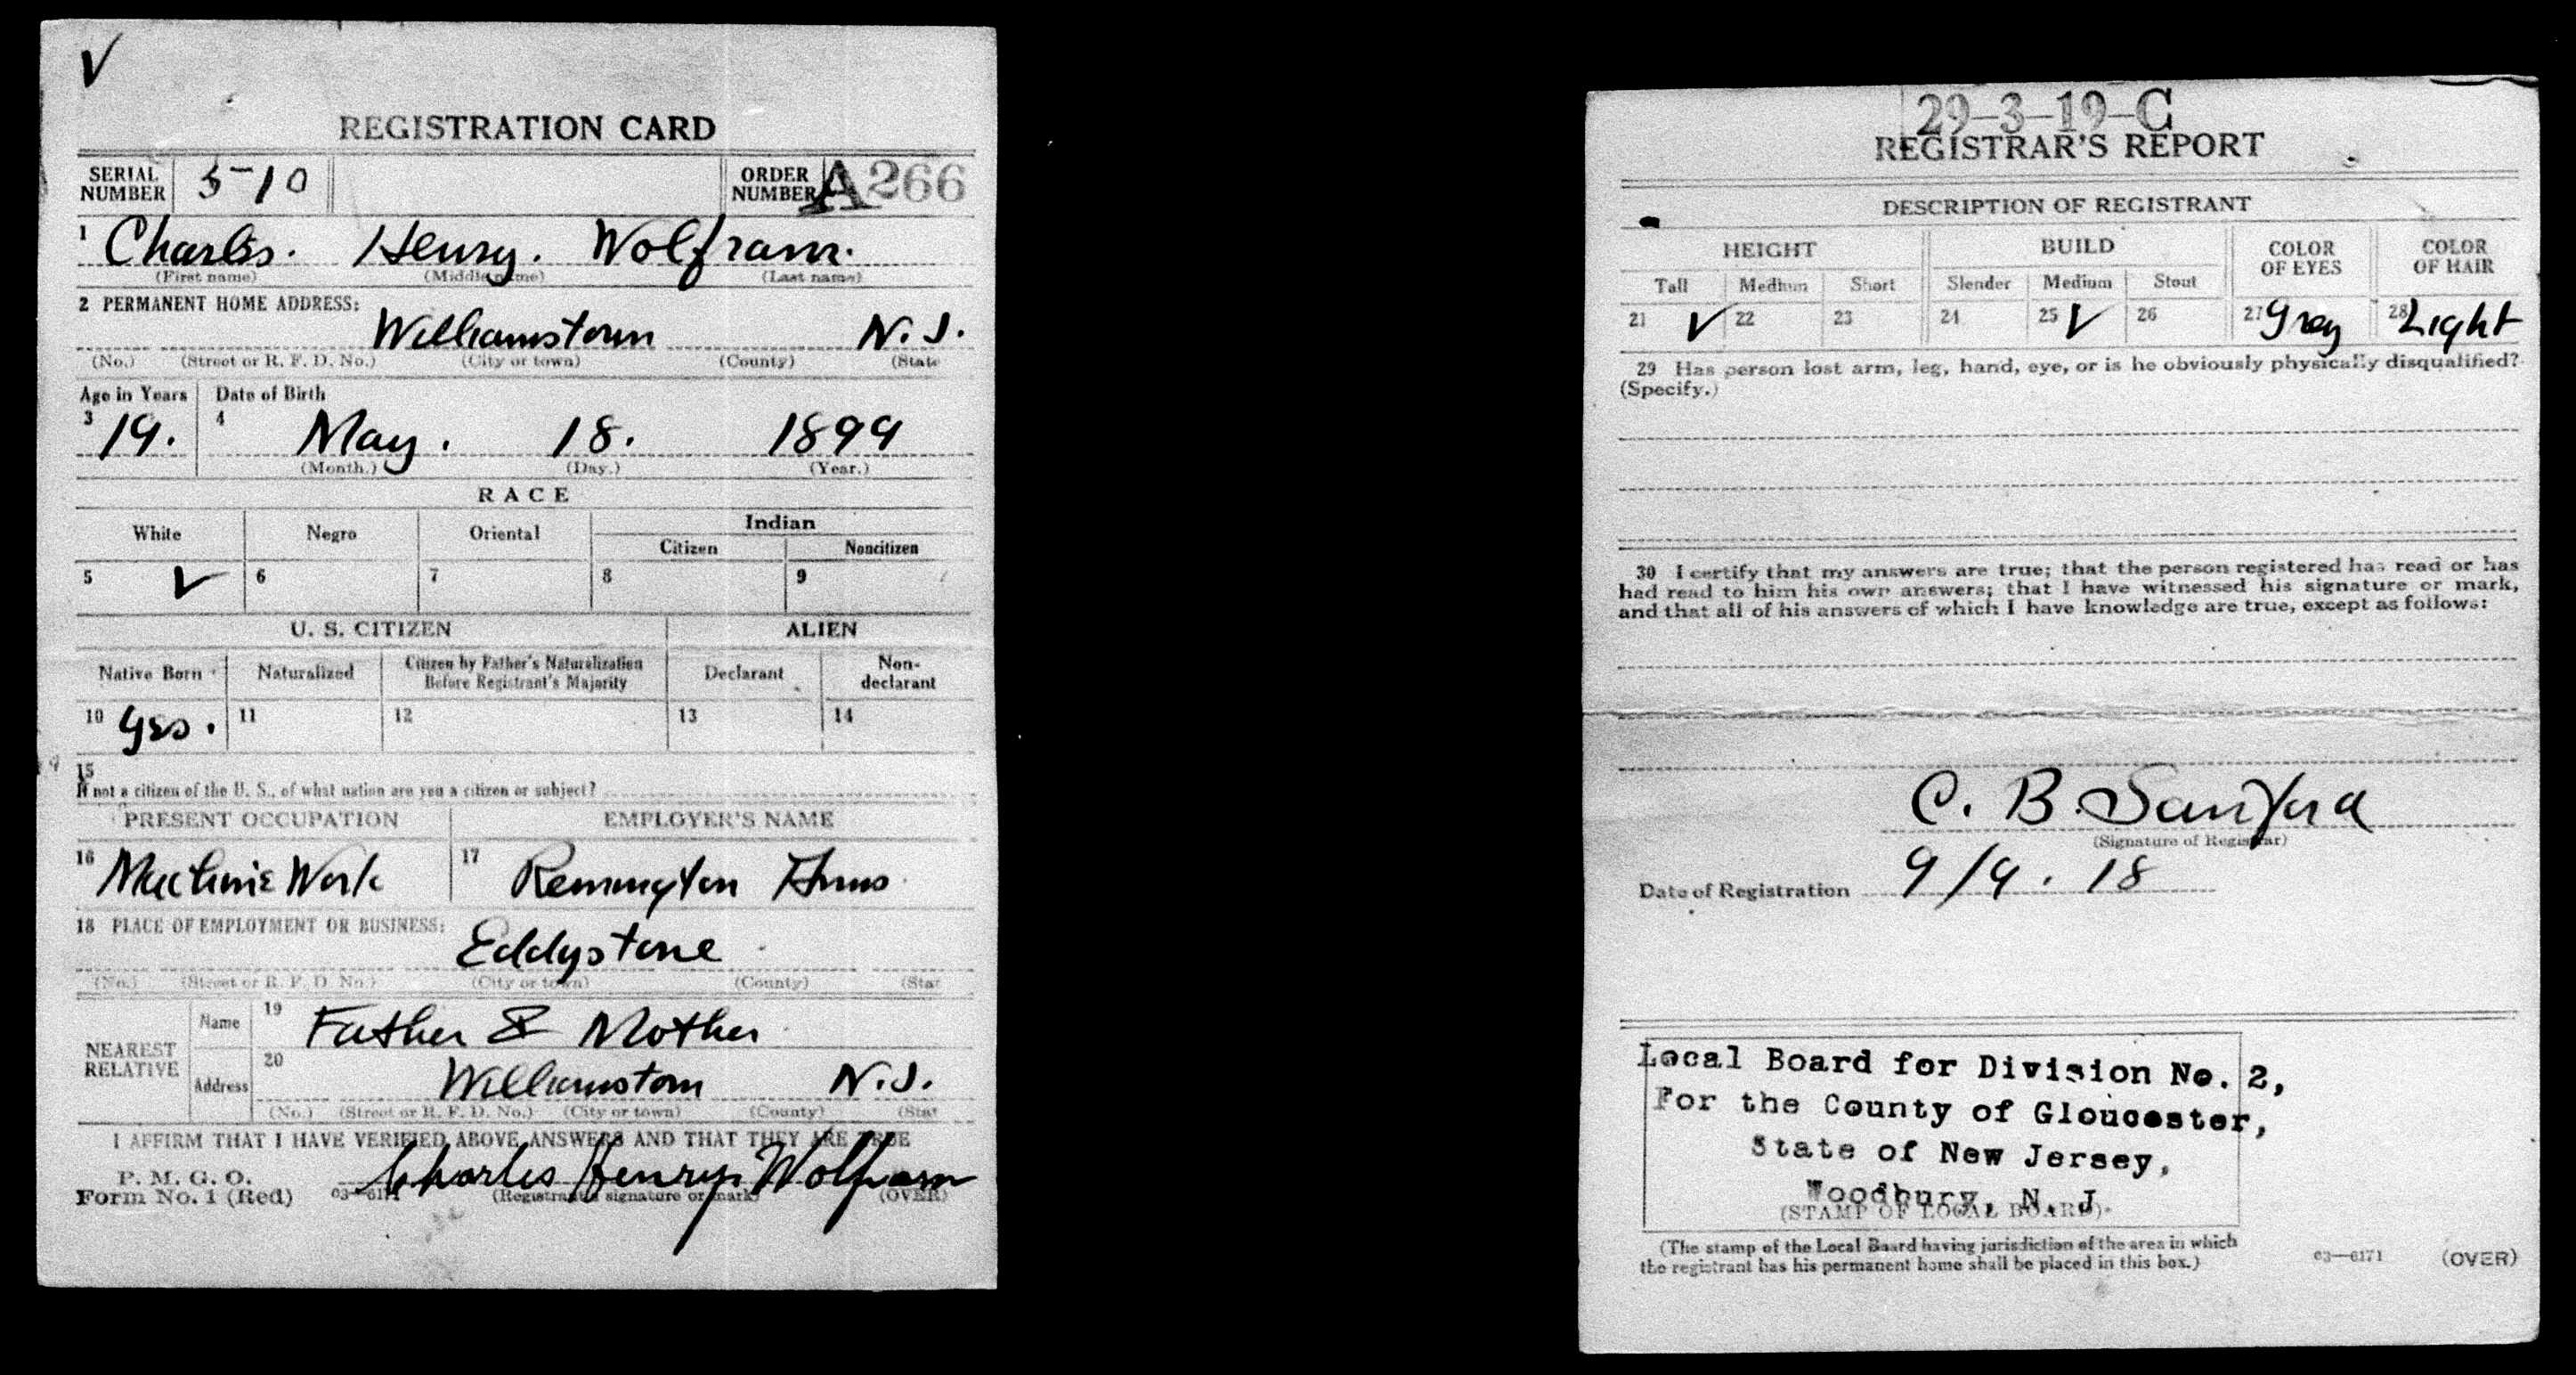 V
REGISTRATION CARD
SERIAL NUMBER 510 ORDER NUMBER A266
1 Charles. Henry. Wolfram.
(First name) (Middle name) (Last name)
2 PERMANENT HOME ADDRESS:
Williamstown N.J.
(No.) (Street or R. F. D. No.) (City or town) (County) (State
Age in Years Date of Birth
3 19. 4 May. 18. 1899
(Month.) (Day.) (Year.)
RACE
White Negro Oriental Indian
Citizen Noncitizen
5 V 6 7 8 9
U. S. CITIZEN ALIEN
Native Born Naturalized Citizen by Father's Naturalization Before Registrant's Majority Declarant Non-declarant
10 Yes. 11 12 13 14
15
If not a citizen of the U. S., of what nation are you a citizen or subject?
PRESENT OCCUPATION EMPLOYER'S NAME
16 Machine Work 17 Remington Arms
18 PLACE OF EMPLOYMENT OR BUSINESS:
Eddystone
(No.) (Street or R. F. D. No.) (City or town) (County) (Stat
NEAREST RELATIVE
Name 19 Father & Mother
Address 20 Williamstown N.J.
(No.) (Street or R. F. D. No.) (City or town) (County) (Stat
I AFFIRM THAT I HAVE VERIFIED ABOVE ANSWERS AND THAT THEY ARE TRUE
P. M. G. O.
Form No. 1 (Red) 03—6171 Charles Henry Wolfram
(Registrant's signature or mark) (OVER)
29-3-19-C
REGISTRAR'S REPORT
DESCRIPTION OF REGISTRANT
HEIGHT BUILD COLOR OF EYES COLOR OF HAIR
Tall Medium Short Slender Medium Stout
21 V 22 23 24 25 V 26 27 Gray 28 Light
29 Has person lost arm, leg, hand, eye, or is he obviously physically disqualified?
(Specify.)
30 I certify that my answers are true; that the person registered has read or has
had read to him his own answers; that I have witnessed his signature or mark,
and that all of his answers of which I have knowledge are true, except as follows:
C. B. Sanford
(Signature of Registrar)
Date of Registration 9/9. 18
Local Board for Division No. 2,
For the County of Gloucester,
State of New Jersey,
Woodbury, N. J.
(STAMP OF LOCAL BOARD)
(The stamp of the Local Board having jurisdiction of the area in which
the registrant has his permanent home shall be placed in this box.)
03—6171 (OVER)